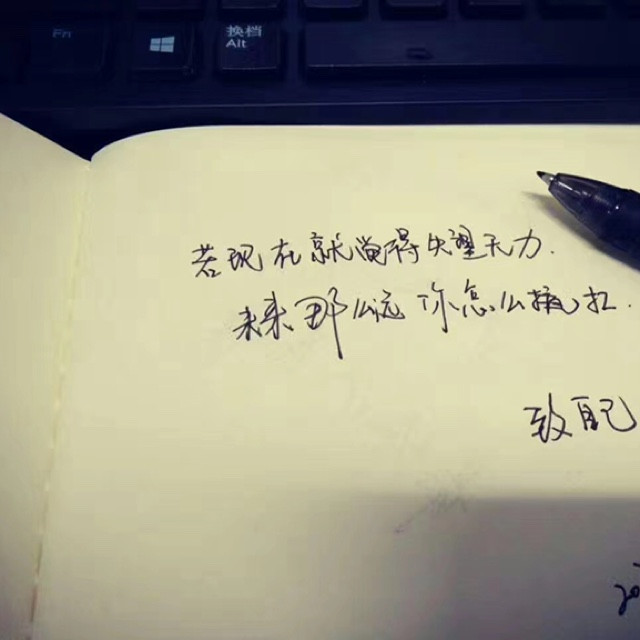 Fn
换档
Alt
若现在就觉得失望无力.
未来那么远你怎么撑扛.
致自己